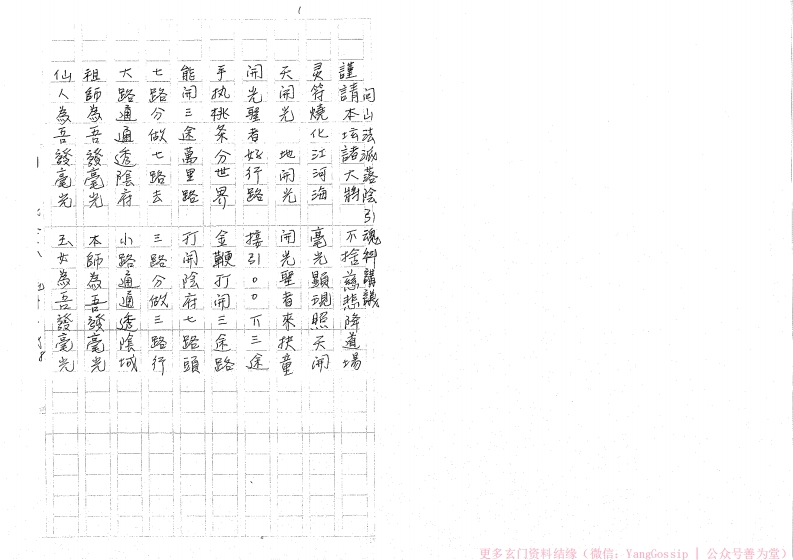 1
闾山法派落陰引魂科講議
謹請本坛諸大將 不捨慈悲降道場
灵符燒化江河海 毫光顯現照天開
天開光 地開光 開光聖者來扶童
開光聖者好行路 接引○○下三途
手执桃条分世界 金鞭打開三途路
能開三途萬里路 打開陰府七路頭
七路分做七路去 三路分做三路行
大路通通透陰府 小路通通透陰城
祖師為吾發毫光 本師為吾發毫光
仙人為吾發毫光 玉女為吾發毫光
更多玄门资料结缘（微信：YangGossip | 公众号善为堂）